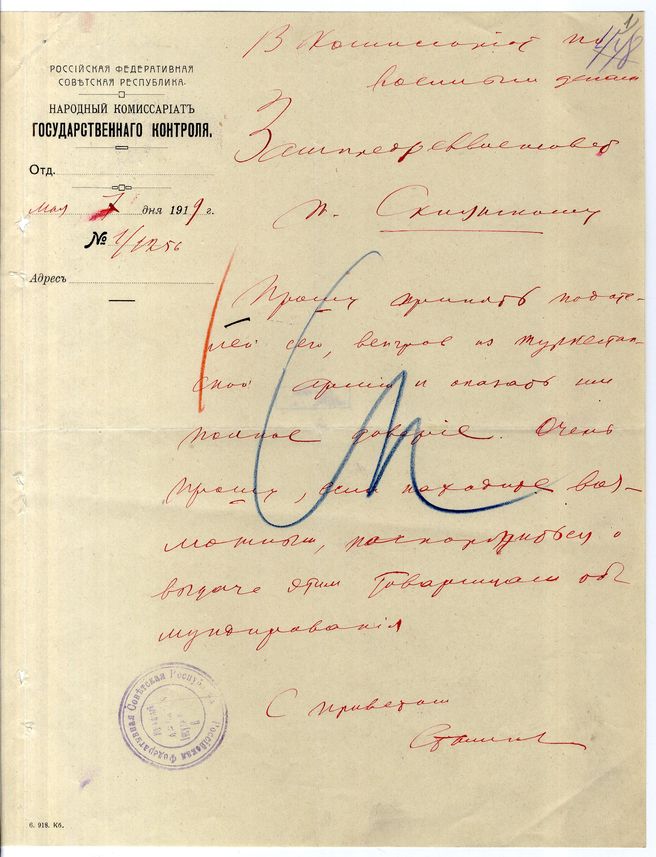 РОССІЙСКАЯ ФЕДЕРАТИВНАЯ
СОВѢТСКАЯ РЕСПУБЛИКА.
НАРОДНЫЙ КОМИССАРІАТЪ
ГОСУДАРСТВЕННАГО КОНТРОЛЯ.
Отд.
мая 7 дня 1919 г.
№
Адресъ
В Комиссариат по
военным делам
Зампредреввоенсовет
т. Склянскому
Прошу принять подате-
лей сего, венгров из туркестан-
ской армии и оказать им
полное доверие. Очень
прошу, если находите воз-
можным, распорядиться о
выдаче этим товарищам об-
мундирования
С приветом
Сталин
Россійская Федеративная Совѣтская Республика
6. 918. Кб.